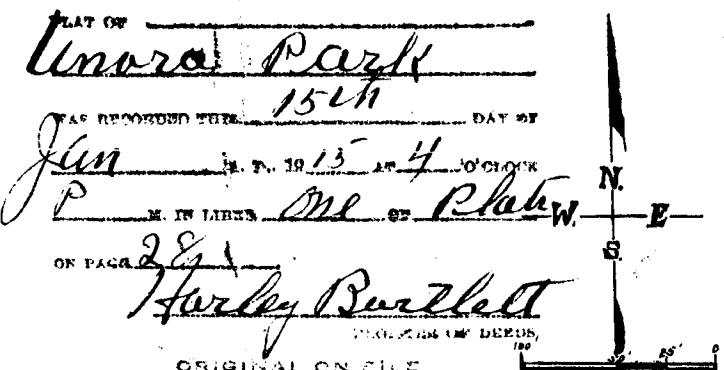 PLAT OF
Unora Park
WAS RECORDED THIS 15th DAY OF
Jan A. D. 1915 AT 4 O'CLOCK
P M. IN LIBER One OF Plats
ON PAGE
Harley Bartlett
REGISTER OF DEEDS,
ORIGINAL ON FILE
N.
W. E
S.
100 50' 25' 0